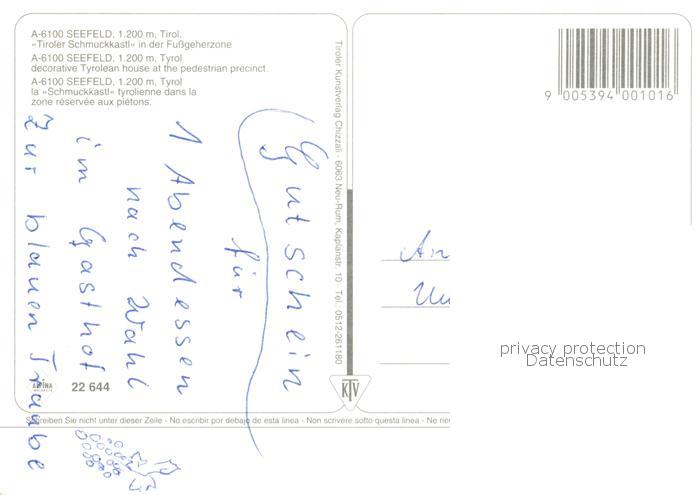 A-6100 SEEFELD, 1.200 m, Tirol.
»Tiroler Schmuckkastl« in der Fußgeherzone
A-6100 SEEFELD, 1.200 m, Tyrol
decorative Tyrolean house at the pedestrian precinct.
A-6100 SEEFELD, 1.200 m, Tyrol
la »Schmuckkastl« tyrolienne dans la
zone réservée aux piétons.
Gutschein
für
1 Abendessen
nach Wahl
im Gasthof
zur blauen Traube
22 644
Tiroler Kunstverlag Chizzali · 6063 Neu-Rum, Kaplanstr. 10 Tel. 0512-261180
KTV
9 005394 001016
An
privacy protection
Datenschutz
Schreiben Sie nicht unter dieser Zeile - No escribir por debajo de esta linea - Non scrivere sotto questa linea -